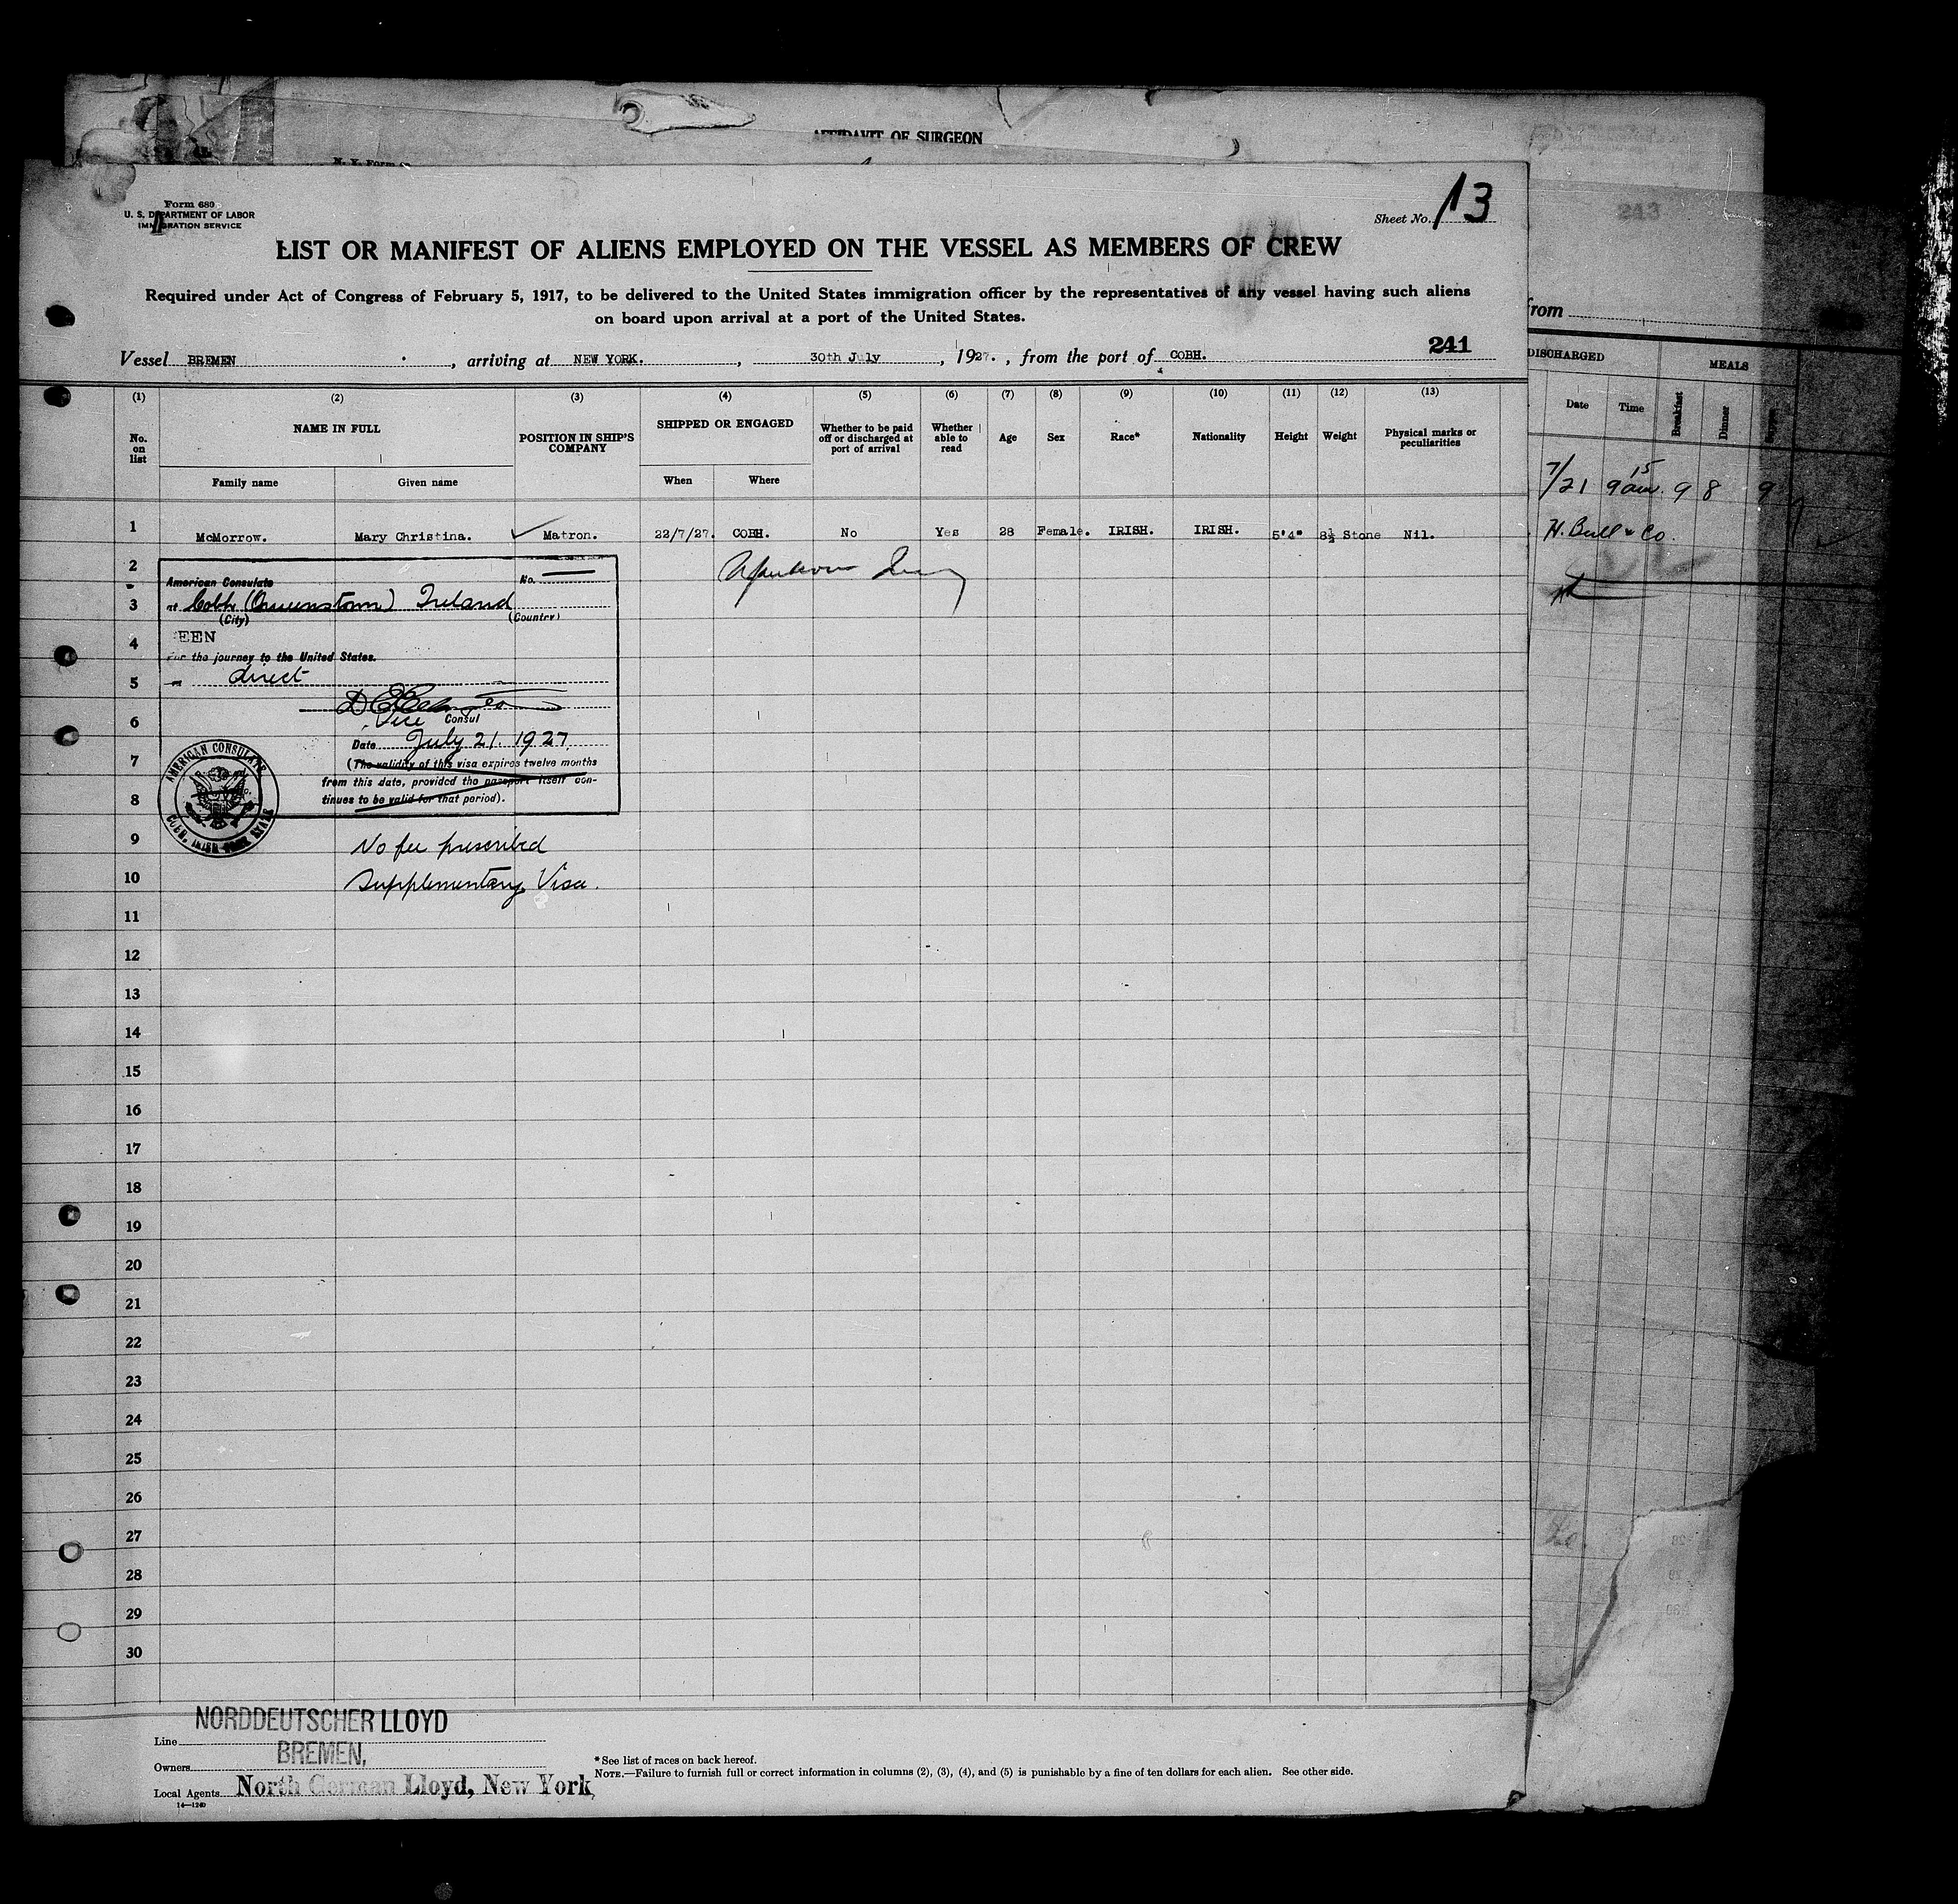 AFFIDAVIT OF SURGEON
Form 680
U. S. DEPARTMENT OF LABOR
IMMIGRATION SERVICE
Sheet No. 13
LIST OR MANIFEST OF ALIENS EMPLOYED ON THE VESSEL AS MEMBERS OF CREW
Required under Act of Congress of February 5, 1917, to be delivered to the United States immigration officer by the representatives of any vessel having such aliens
on board upon arrival at a port of the United States.
241
Vessel BREMEN, arriving at NEW YORK., 30th July, 1927., from the port of COBH.
(1) (2) (3) (4) (5) (6) (7) (8) (9) (10) (11) (12) (13)
No. on list NAME IN FULL POSITION IN SHIP'S COMPANY SHIPPED OR ENGAGED Whether to be paid off or discharged at port of arrival Whether able to read Age Sex Race* Nationality Height Weight Physical marks or peculiarities
Family name Given name When Where
1 McMorrow. Mary Christina. Matron. 22/7/27. COBH. No Yes 28 Female. IRISH. IRISH. 5'4" 8½ Stone Nil.
2
3
4
5
6
7
8
9
10
11
12
13
14
15
16
17
18
19
20
21
22
23
24
25
26
27
28
29
30
American Consulate No.
at Cobh (Queenstown) Ireland
(City) (Country)
EEN
For the journey to the United States.
direct
Vice Consul
Date July 21. 1927.
(The validity of this visa expires twelve months
from this date, provided the passport itself con-
tinues to be valid for that period).
AMERICAN CONSULATE
COBH, IRISH FREE STATE
No fee prescribed
Supplementary Visa.
NORDDEUTSCHER LLOYD
Line
BREMEN.
Owners
Local Agents North German Lloyd, New York,
14—1240
*See list of races on back hereof.
NOTE.—Failure to furnish full or correct information in columns (2), (3), (4), and (5) is punishable by a fine of ten dollars for each alien. See other side.
243
from
DISCHARGED MEALS
Date Time Breakfast Dinner Supper
7/21 9 15 am. 9 8 9
H. Bull & Co.